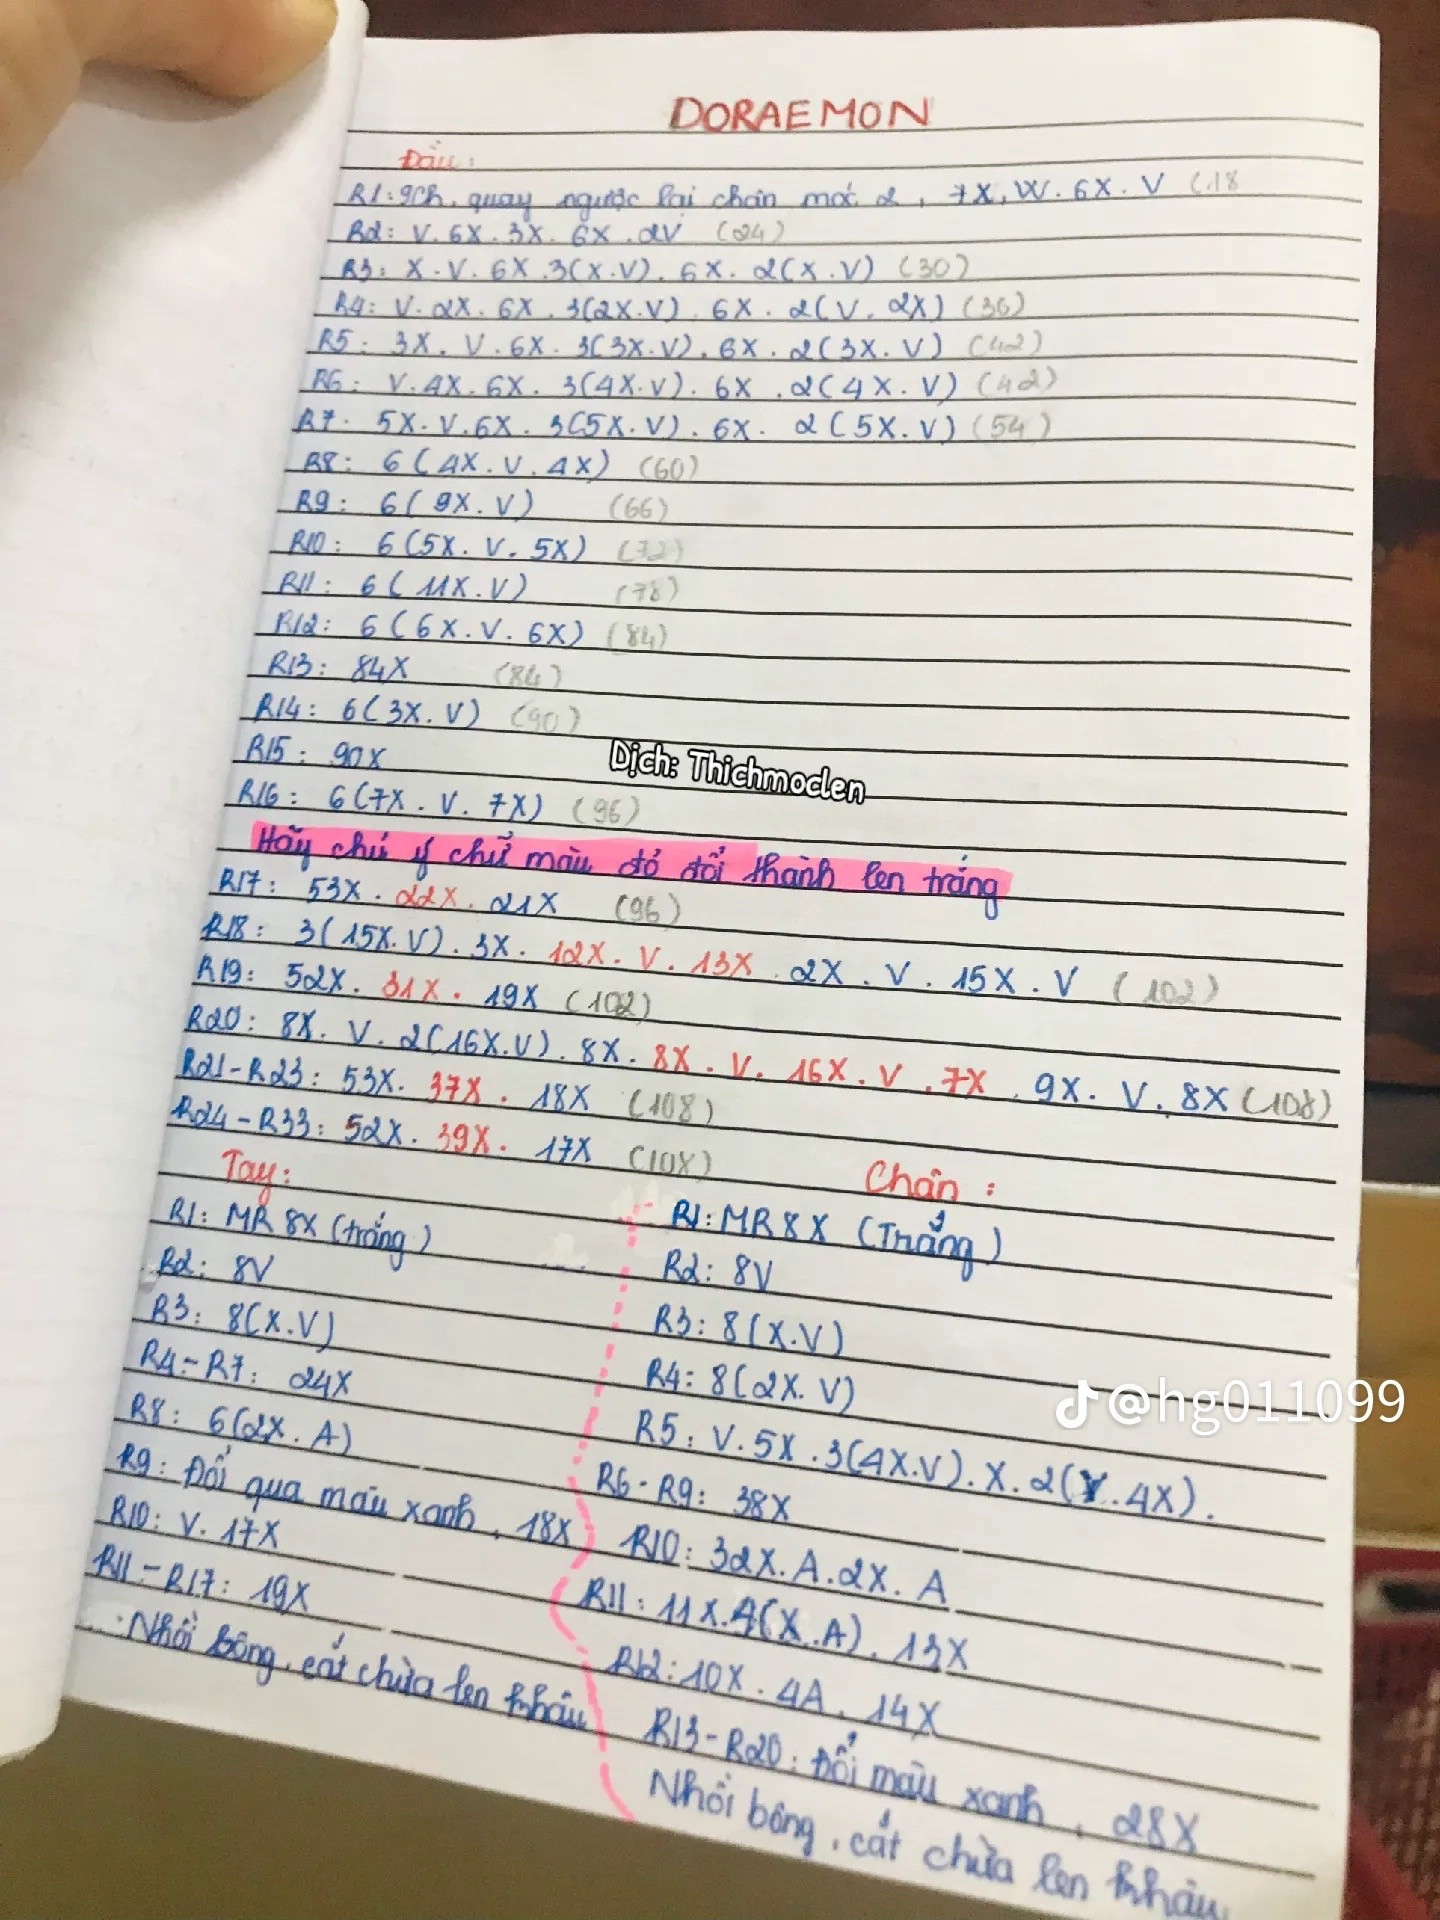 DORAEMON
Đầu:
R1: 9ch, quay ngược lại chân móc 2, 7X, W. 6X. V (18
R2: V. 6X. 3X. 6X. 2V (24)
R3: X. V. 6X. 3(X.V). 6X. 2(X.V) (30)
R4: V. 2X. 6X. 3(2X.V). 6X. 2(V. 2X) (36)
R5: 3X. V. 6X. 3(3X.V). 6X. 2(3X. V) (42)
R6: V. 4X. 6X. 3(4X.V). 6X. 2(4X. V) (42)
R7. 5X. V. 6X. 3(5X.V). 6X. 2(5X.V) (54)
R8: 6(4X. V. 4X) (60)
R9: 6(9X. V) (66)
R10: 6(5X. V. 5X) (72)
R11: 6(11X. V) (78)
R12: 6(6X. V. 6X) (84)
R13: 84X (84)
R14: 6(3X. V) (90)
R15: 90X
Dịch: Thichmoclen
R16: 6(7X. V. 7X) (96)
Hãy chú ý chữ màu đỏ đổi thành len trắng
R17: 53X. 22X. 21X (96)
R18: 3(15X.V). 3X. 12X. V. 13X. 2X. V. 15X. V (102)
R19: 52X. 31X. 19X (102)
R20: 8X. V. 2(16X.V). 8X. 8X. V. 16X. V. 7X. 9X. V. 8X (108)
R21-R23: 53X. 37X. 18X (108)
R24-R33: 52X. 39X. 17X (10X)
Tay:
R1: MR 8X (trắng)
R2: 8V
R3: 8(X.V)
R4-R7: 24X
R8: 6(2X. A)
R9: Đổi qua màu xanh, 18X
R10: V. 17X
R11-R17: 19X
Nhồi bông, cắt chừa len khâu
Chân:
R1: MR 8X (Trắng)
R2: 8V
R3: 8(X.V)
R4: 8(2X. V)
R5: V. 5X. 3(4X.V). X. 2(V. 4X).
R6-R9: 38X
R10: 32X. A. 2X. A
R11: 11X. 4(X.A). 13X
R12: 10X. 4A. 14X
R13-R20: Đổi màu xanh, 28X
Nhồi bông, cắt chừa len khâu
@hg011099